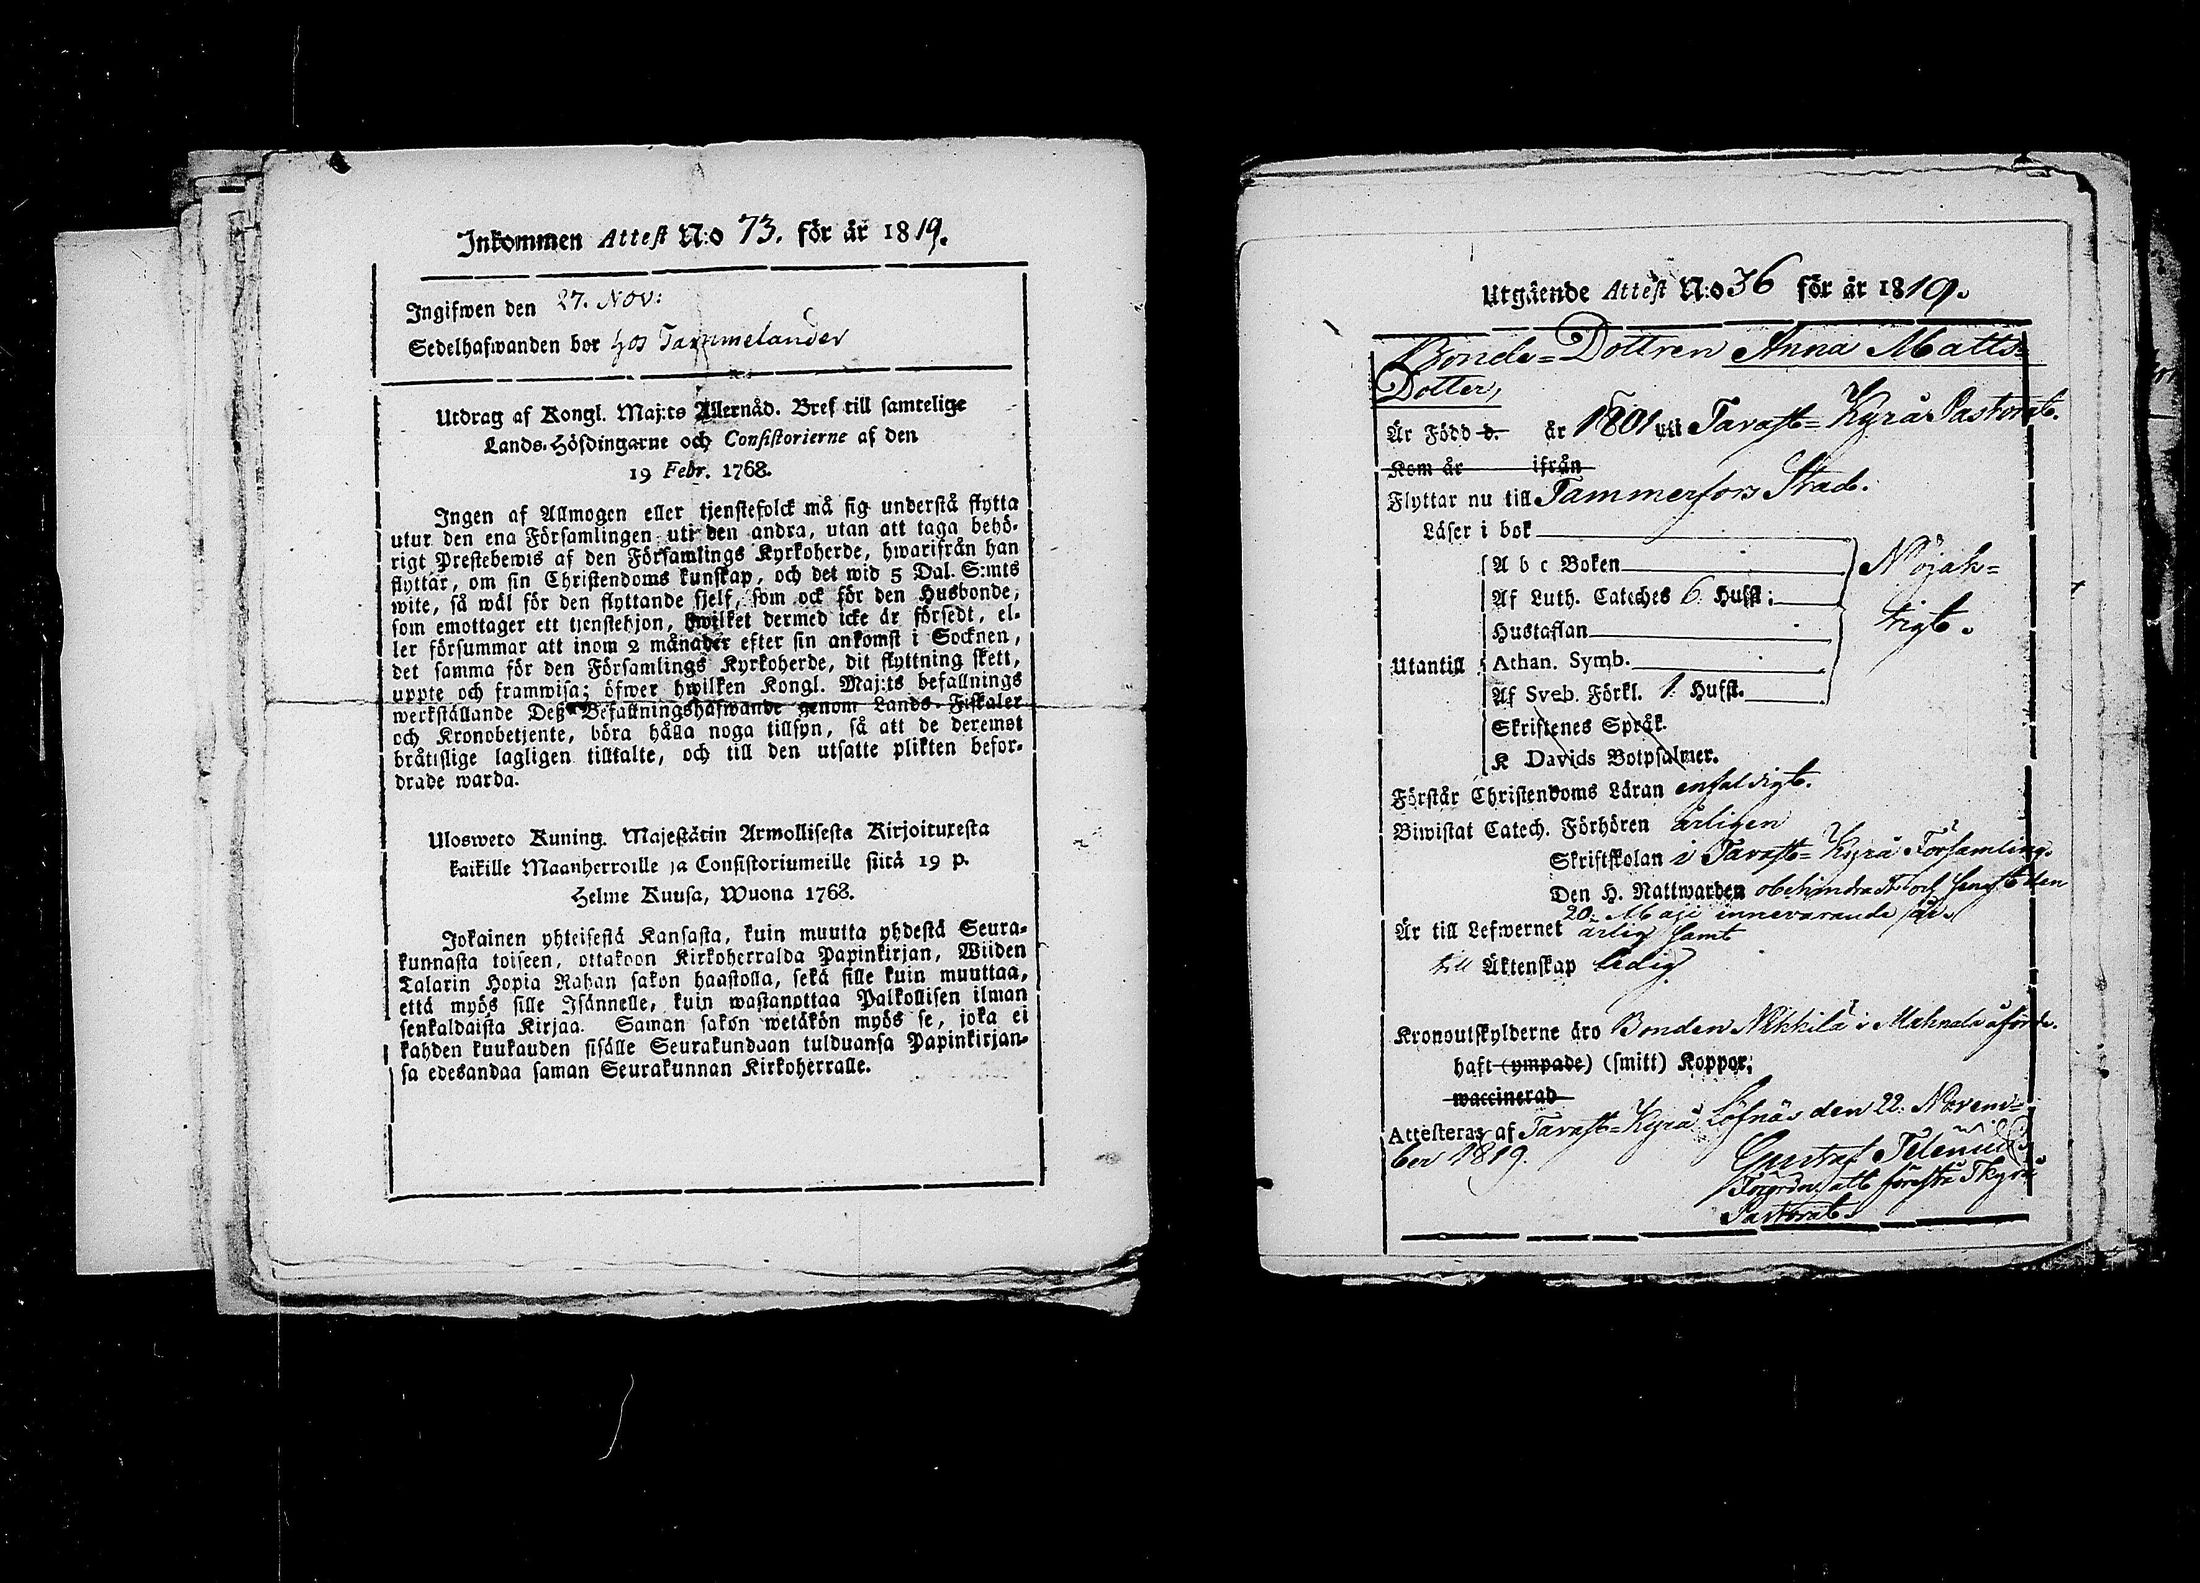 Inkommen Attest N:o 73. för år 1819.
Ingifwen den 27. Nov:
Sedelhafwanden bor hos Tammelander
Utdrag af Kongl. Maj:ts Allernåd. Bref till samtelige
Lands-Höfdingarne och Consistorierne af den
19 Febr. 1768.
Ingen af Allmogen eller tjenstefolck må sig understå flytta
utur den ena Församlingen uti den andra, utan att taga behö-
rigt Prestebewis af den Församlings Kyrkoherde, hwarifrån han
flyttar, om sin Christendoms kunskap, och det wid 5 Dal. S:mts
wite, så wäl för den flyttande sjelf, som ock för den Husbonde,
som emottager ett tjenstehjon, hwilket dermed icke är försedt, el-
ler försummar att inom 2 månader efter sin ankomst i Socknen,
det samma för den Församlings Kyrkoherde, dit flyttning skett,
uppte och framwisa; öfwer hwilken Kongl. Maj:ts befallnings
werkställande Deß Befallningshafwande genom Lands-Fiskaler
och Kronobetjente, böra hålla noga tillsyn, så att de deremot
bråttslige lagligen tilltalte, och till den utsatte plikten befor-
drade warda.
Ulosweto Kuning. Majestätin Armollisesta Kirjoituxesta
kaikille Maanherroille ja Consistoriumeille siitä 19 p.
Helme Kuusa, Wuona 1768.
Jokainen yhteisestä Kansasta, kuin muutta yhdestä Seura-
kunnasta toiseen, ottakoon Kirkoherralda Papinkirjan, Wiiden
Talarin Hopia Rahan sakon haastolla, sekä sille kuin muuttaa,
että myös sille Isännelle, kuin wastanottaa Palkollisen ilman
senkaldaista Kirjaa. Saman sakon wetäkön myös se, joka ei
kahden kuukauden sisälle Seurakundaan tulduansa Papinkirjan-
sa edesandaa saman Seurakunnan Kirkoherralle.
Utgående Attest N:o 36 för år 1819.
Bonde-Dottren Anna Matts-
Dotter,
Är Född d. år 1801 uti Tavast-Kyrå Pastorat.
Kom år ifrån
Flyttar nu till Tammerfors Stad.
Läser i bok
A b c Boken
Nöjak-
Af Luth. Catech es 6 Hufst:
trigt.
Hustaflan
Utantill Athan. Symb.
Af Sveb. Förkl. 1. Hufst.
Skriftenes Språk.
K Davids Botpsalmer.
Förstår Christendoms Läran enfaldigt.
Biwistat Catech. Förhören årligen
Skriftskolan i Tavast-Kyrå Församling.
Den H. Nattwarden obehindradt och senast den
20. Maji innevarande år.
Är till Lefwernet ärlig samt
till Äktenskap ledig
Kronoutskylderne äro Bonden Nikkilä i Mahnala åförde.
haft (ympade) (smitt) Koppor,
waccinerad
Attesteras af Tavast-Kyrå Löfnäs den 22. Novem-
ber 1819.
Gustaf Telenius
att förestå TKyrå
Pastorat.